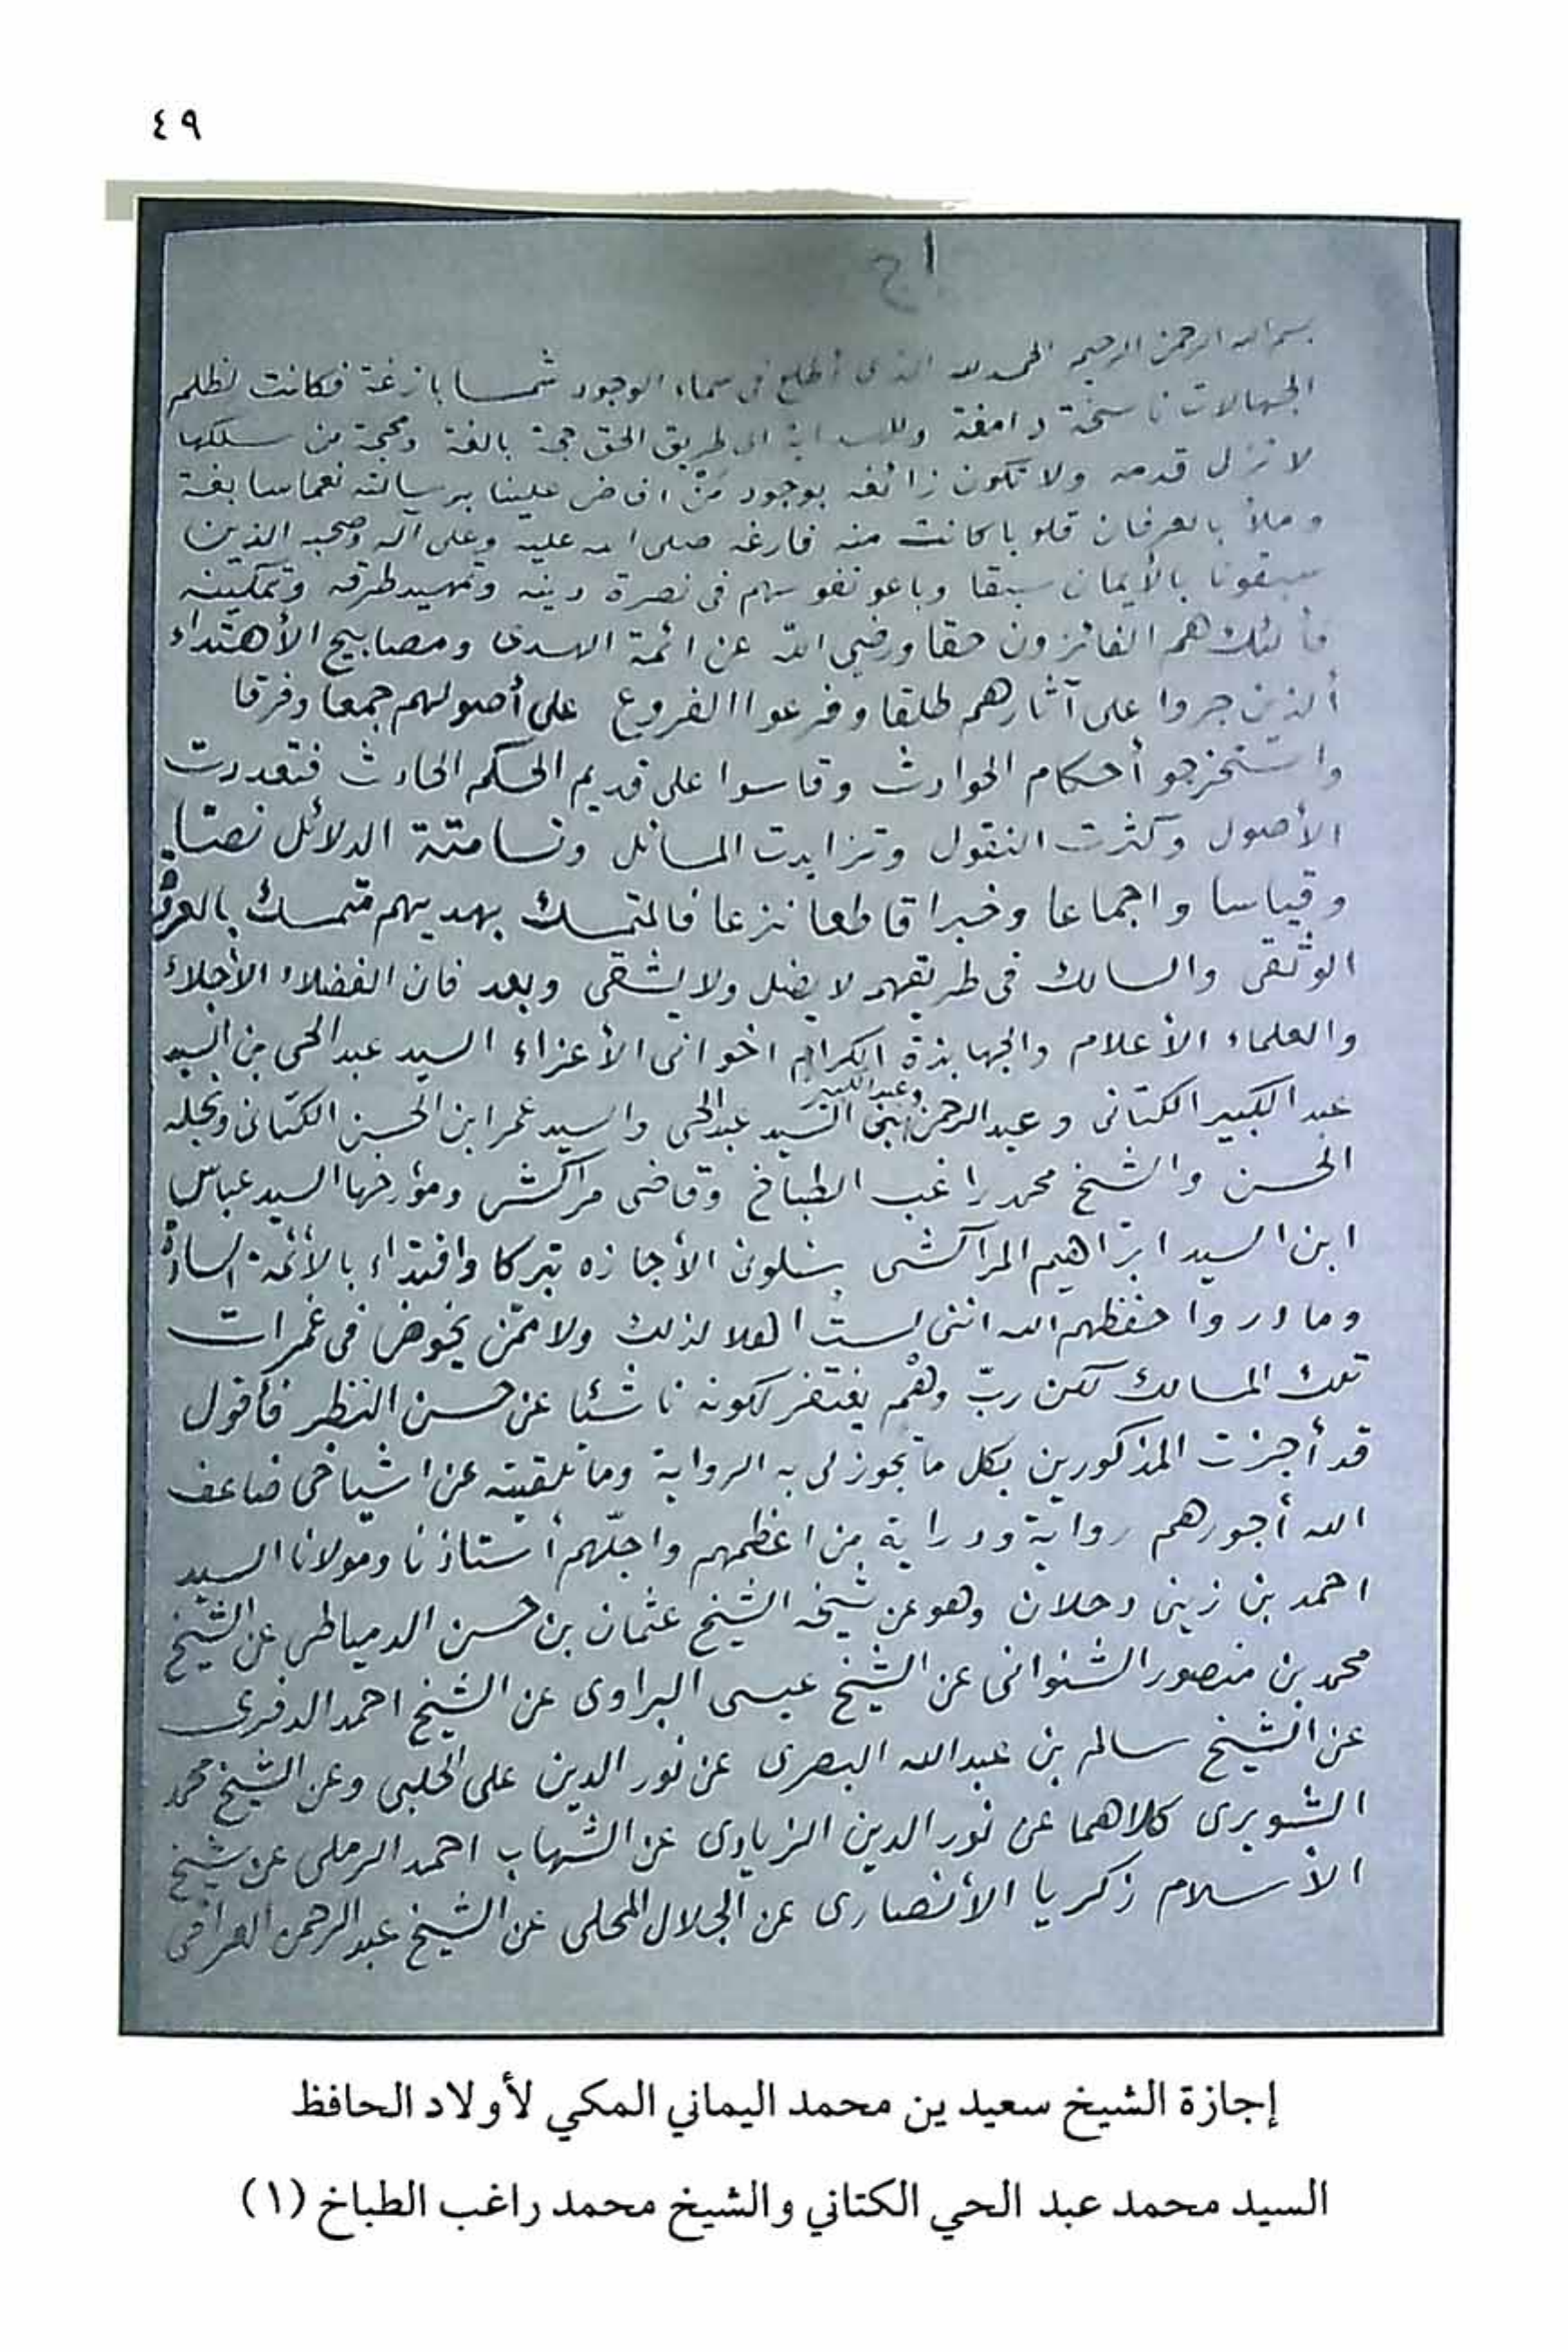 ٤٩
اج
بسم الله الرحمن الرحيم الحمد لله الذى أطلع فى سماء الوجود شمسا بازغة فكانت لظلم
الجهالات ناسخة دامغة وللهداية الى طريق الحق حجة بالغة ومحجة من سلكها
لا تزل قدمه ولا تكون زائغه بوجود من افاض علينا برسالته نعما سابغة
وملأ بالعرفان قلوبا كانت منه فارغه صلى الله عليه وعلى آله وصحبه الذين
سبقونا بالأيمان سبقا وباعو نفوسهم فى نصرة دينه وتمهيد طرقه وتمكينه
فألئك هم الفائزون حقا ورضى الله عن ائمة الهدى ومصابيح الأهتداء
ألذين جروا على آثارهم طلقا وفرعوا الفروع على أصولهم جمعا وفرقا
واستخرجو أحكام الحوادث وقاسوا على قديم الحكم الحادث فتعددت
الأصول وكثرت النقول وتزايدت المسائل وتسامتة الدلائل نصا
وقياسا واجماعا وخبرا قاطعا نزعا فالمتمسك بهديهم متمسك بالعروة
الوثقى والسالك فى طريقهم لا يضل ولا يشقى وبعد فان الفضلاء الأجلاء
والعلماء الأعلام والجهابذة الكرام اخوانى الأعزاء السيد عبد الحى بن السيد
عبد الكبير الكتانى وعبد الرحمن وعبد الكبير ابنى السيد عبد الحى والسيد عمر ابن الحسن الكتانى ونجله
الحسن والشيخ محمد راغب الطباخ وقاضى مراكش ومؤرخها السيد عباس
ابن السيد ابراهيم المراكشى سئلونى الأجازه تبركا واقتداء بالأئمة السادة
وما دروا حفظهم الله اننى لست اهلا لذلك ولا ممن يخوض فى غمرات
تلك المسالك لكن ربّ وهم يغتفر لكونه ناشئا عن حسن النظر فأقول
قد أجزت المذكورين بكل ما تجوز لى به الرواية وما تلقيته عن اشياخى ضاعف
الله أجورهم رواية ودراية من اعظمهم واجلّهم أستاذنا ومولانا السيد
احمد بن زينى دحلان وهو عن شيخه الشيخ عثمان بن حسن الدمياطى عن الشيخ
محمد بن منصور الشنوانى عن الشيخ عيسى البراوى عن الشيخ احمد الدفرى
عن الشيخ سالم بن عبد الله البصرى عن نور الدين على الحلبى وعن الشيخ محمد
الشوبرى كلاهما عن نور الدين الزيادى عن الشهاب احمد الرملى عن شيخ
الأسلام زكريا الأنصارى عن الجلال المحلى عن الشيخ عبد الرحمن العراقى
إجازة الشيخ سعيد ين محمد اليماني المكي لأولاد الحافظ
السيد محمد عبد الحي الكتاني والشيخ محمد راغب الطباخ (١)